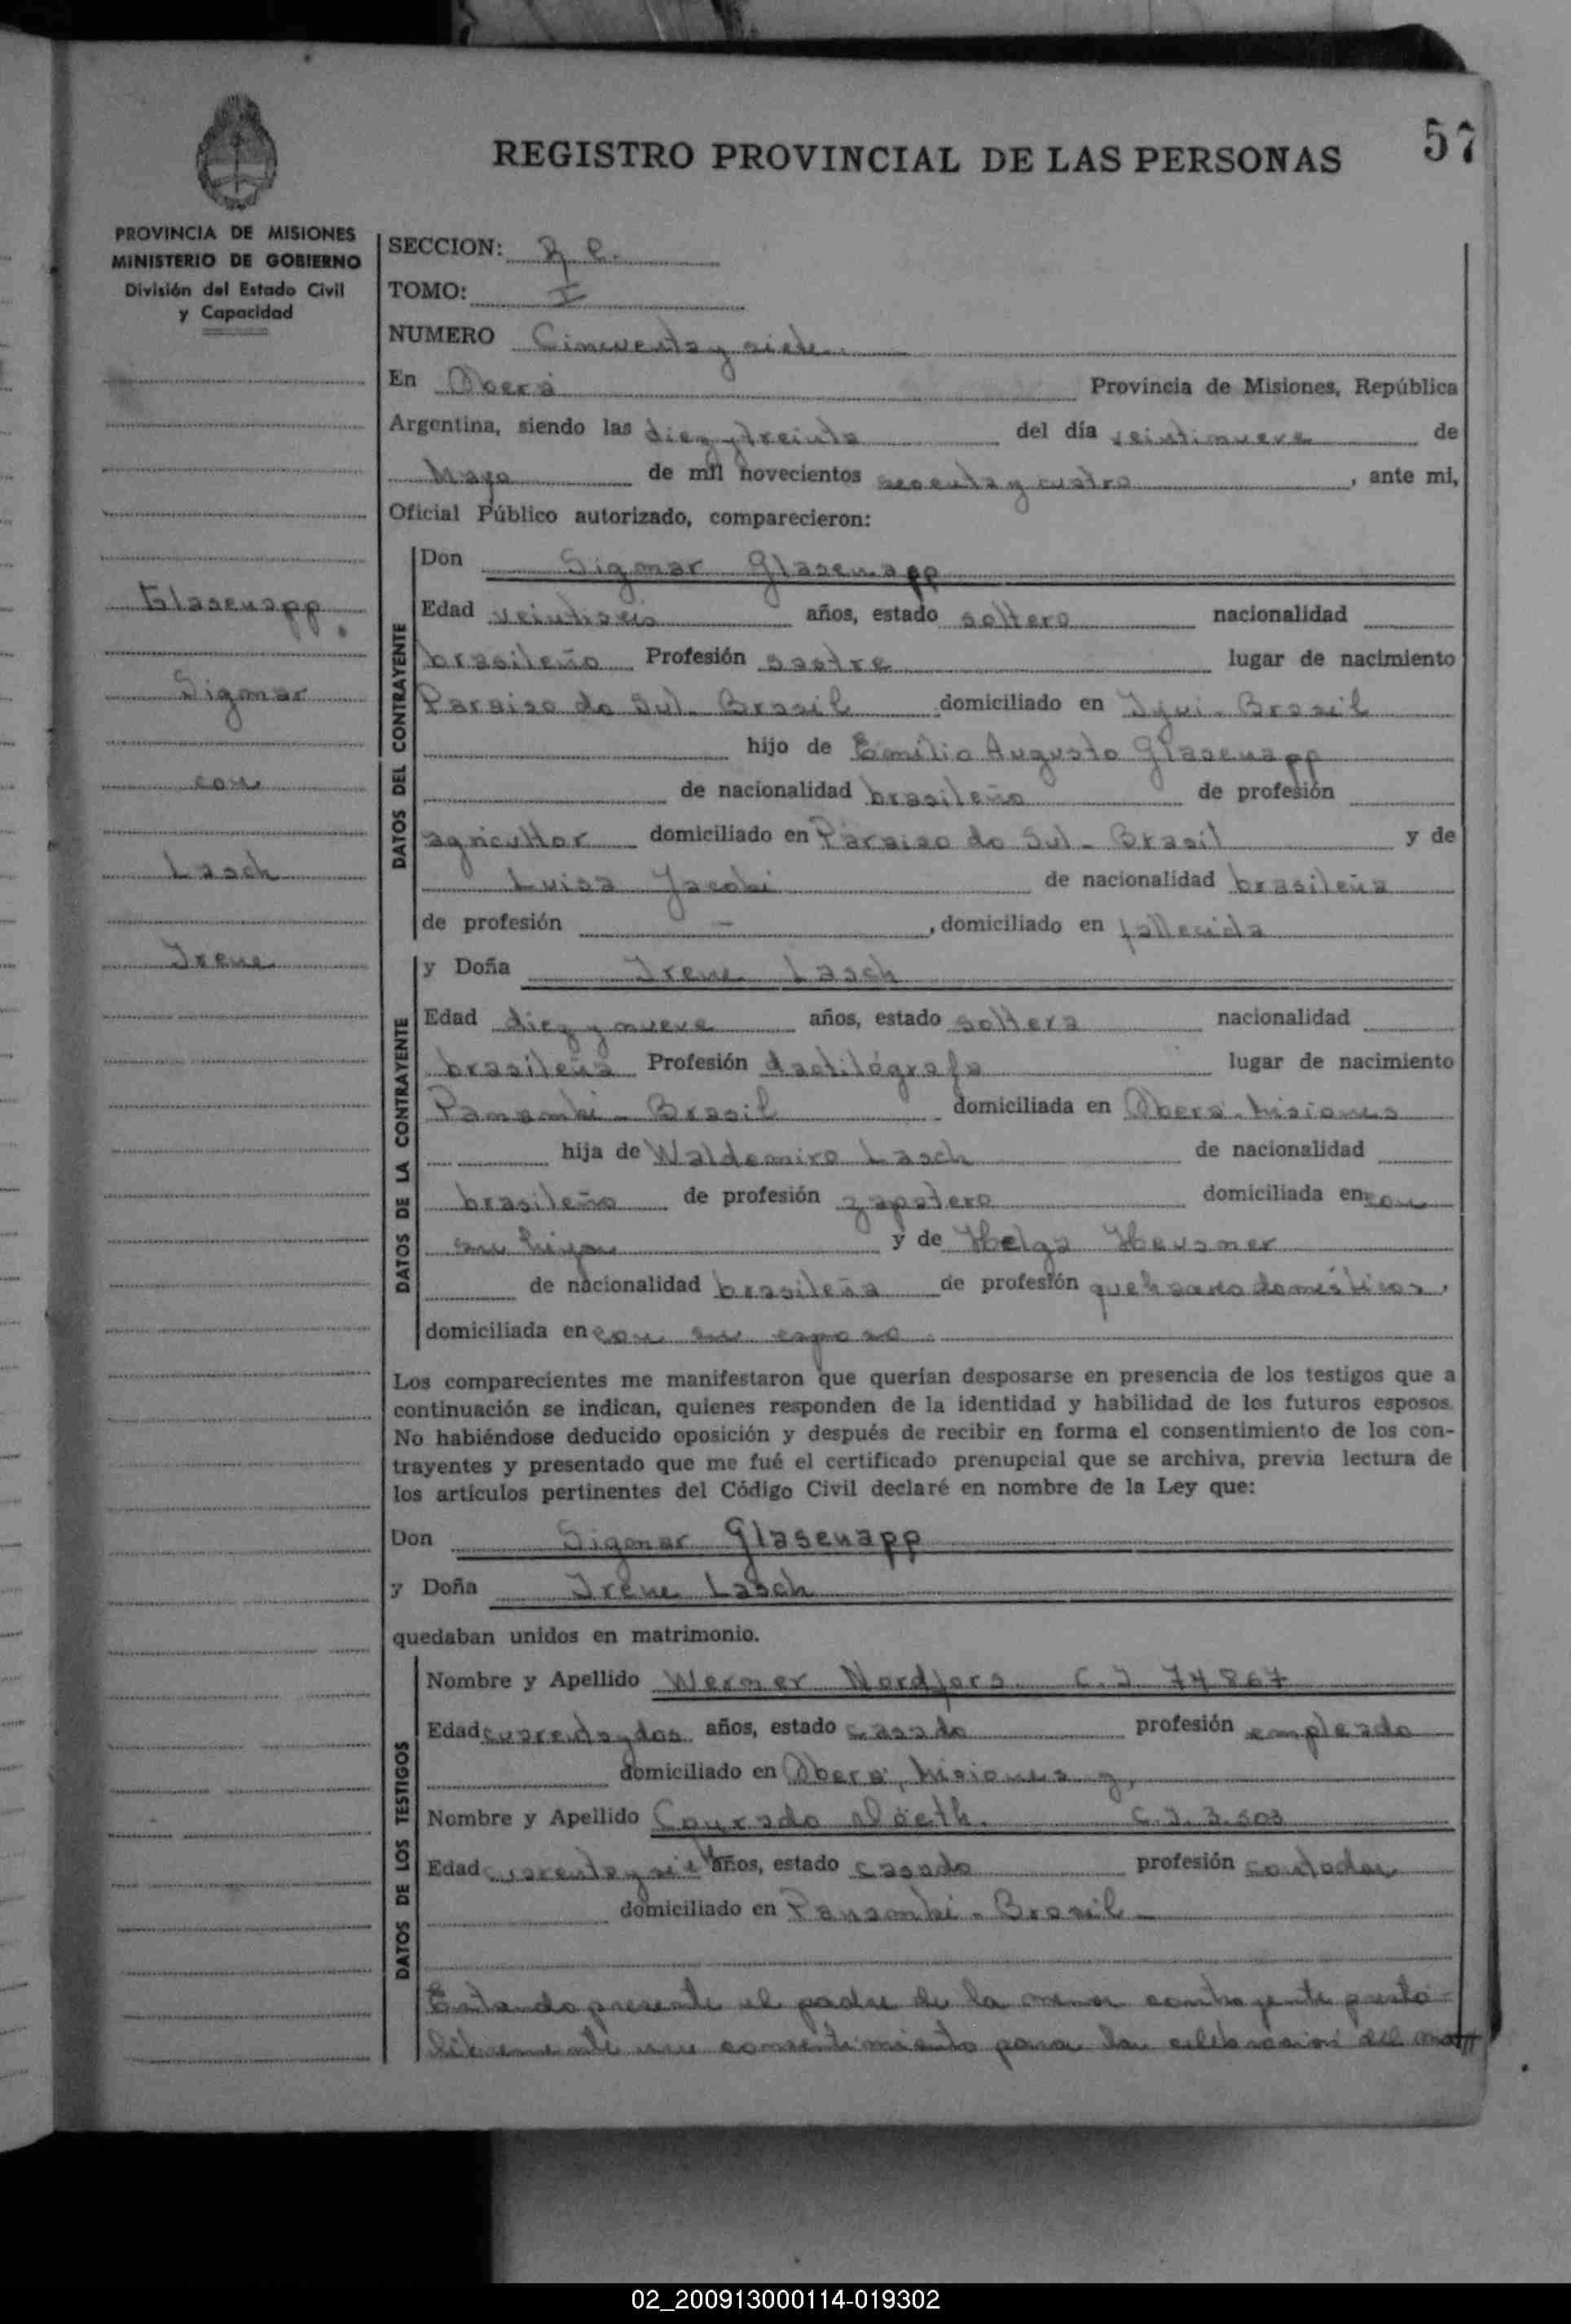 57
REGISTRO PROVINCIAL DE LAS PERSONAS
PROVINCIA DE MISIONES
MINISTERIO DE GOBIERNO
División del Estado Civil
y Capacidad
Glasenapp
Sigmar
con
Lasch
Irene
SECCION:
TOMO: I
NUMERO Cincuenta y siete
En Oberá Provincia de Misiones, República
Argentina, siendo las diez y treinta del día veintinueve de
Mayo de mil novecientos sesenta y cuatro, ante mi,
Oficial Público autorizado, comparecieron:
DATOS DEL CONTRAYENTE
Don Sigmar Glasenapp
Edad veintiseis años, estado soltero nacionalidad
brasileño Profesión sastre lugar de nacimiento
Paraiso do Sul - Brasil domiciliado en Ijui - Brasil
hijo de Emilio Augusto Glasenapp
de nacionalidad brasileño de profesión
agricultor domiciliado en Paraiso do Sul - Brasil y de
Luisa Jacobi de nacionalidad brasileña
de profesión - , domiciliado en fallecida
DATOS DE LA CONTRAYENTE
y Doña Irene Lasch
Edad diez y nueve años, estado soltera nacionalidad
brasileña Profesión dactilógrafa lugar de nacimiento
Panambi - Brasil domiciliada en Oberá - Misiones
hija de Waldemiro Lasch de nacionalidad
brasileño de profesión zapatero domiciliada en con
su hija y de Helga Heusner
de nacionalidad brasileña de profesión quehaceres domésticos,
domiciliada en con su esposo
Los comparecientes me manifestaron que querían desposarse en presencia de los testigos que a
continuación se indican, quienes responden de la identidad y habilidad de los futuros esposos.
No habiéndose deducido oposición y después de recibir en forma el consentimiento de los con-
trayentes y presentado que me fué el certificado prenupcial que se archiva, previa lectura de
los artículos pertinentes del Código Civil declaré en nombre de la Ley que:
Don Sigmar Glasenapp
y Doña Irene Lasch
quedaban unidos en matrimonio.
DATOS DE LOS TESTIGOS
Nombre y Apellido Werner Nordfors C. I. 74867
Edad cuarenta y dos años, estado casado profesión empleado
domiciliado en Oberá, Misiones y,
Nombre y Apellido Conrado C. I. 3.503
Edad cuarenta y siete años, estado casado profesión contador
domiciliado en Panambi - Brasil
Estando presente el padre de la menor contrayente prestó
libremente su consentimiento para la celebracion del
02_200913000114-019302